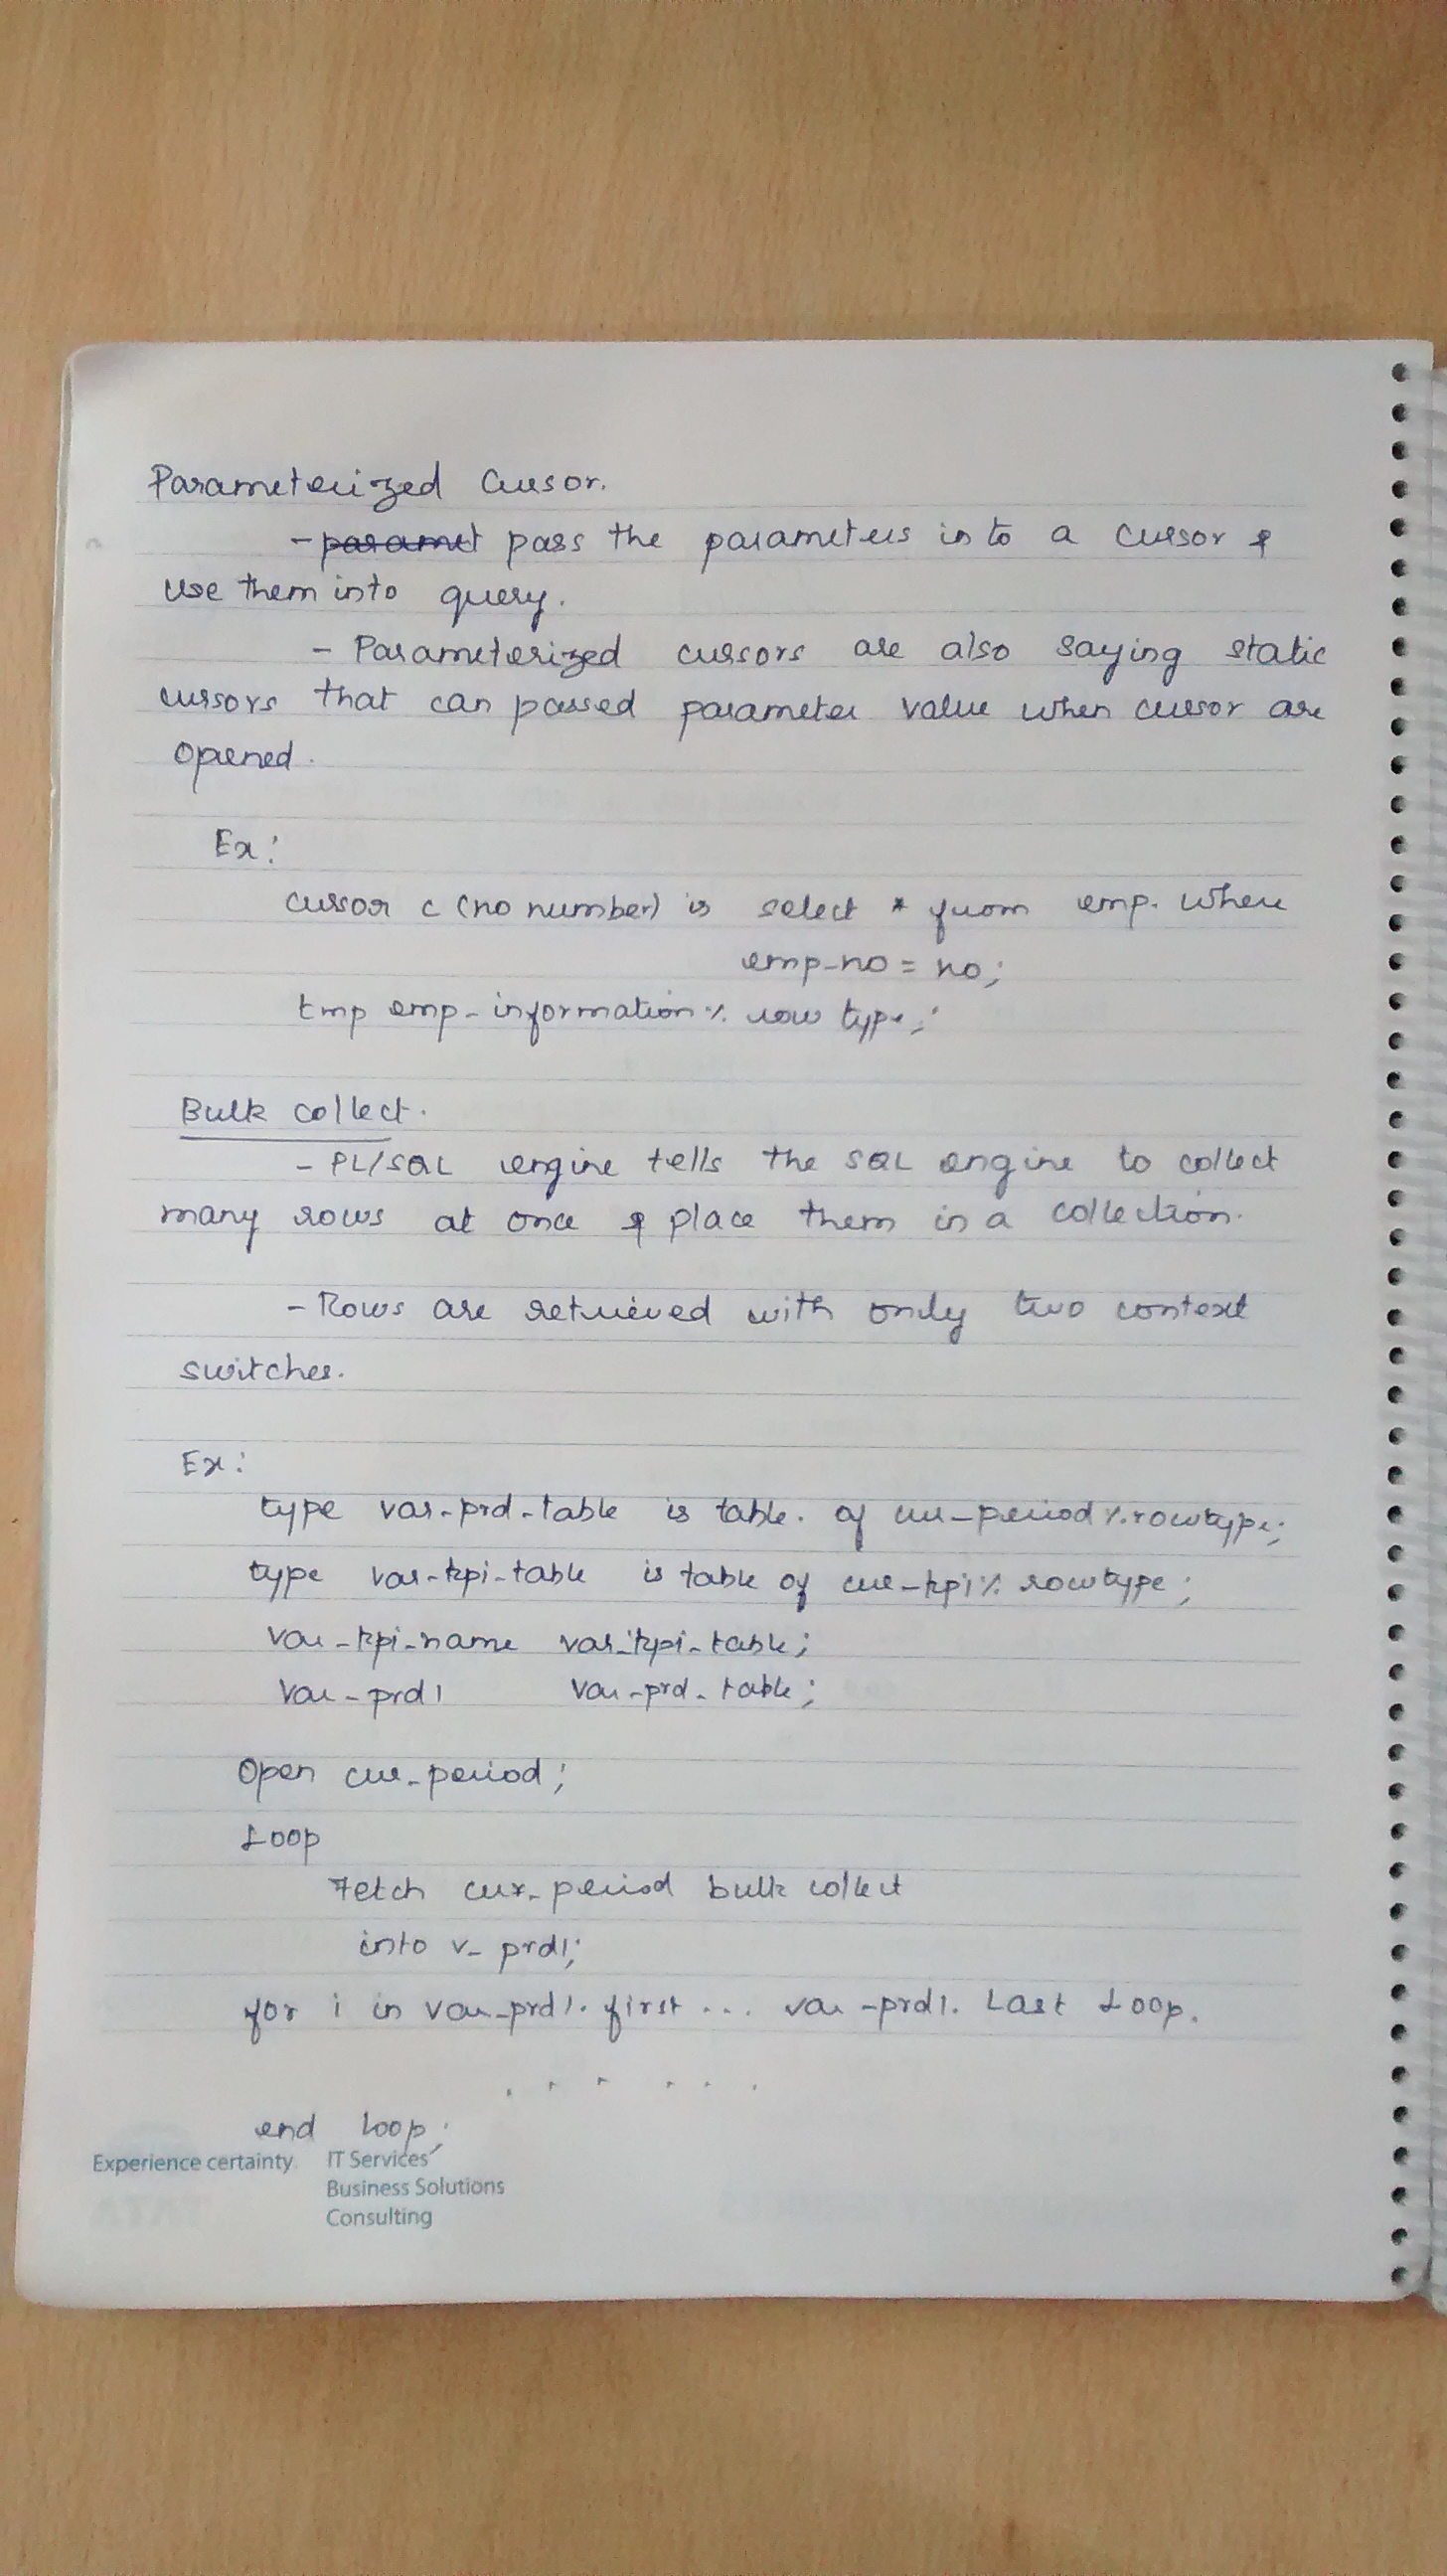 Parameterized Cursor.
- paramet pass the parameters in to a cursor &
use them into query.
- Parameterized cursors are also saying static
cursors that can passed parameter value when cursor are
opened.
Ex:
cursor c (no number) is select * from emp. where
emp-no = no;
tmp emp-information % row type;
Bulk collect.
- PL/SQL engine tells the SQL engine to collect
many rows at once & place them in a collection.
- Rows are retrieved with only two context
switches.
Ex:
type var-prd-table is table. of cur-period %.rowtype;
type var-kpi-table is table of cur-kpi% rowtype;
var-kpi-name var-kpi-table;
var-prd1 var-prd-table;
Open cur-period;
Loop
Fetch cur-period bulk collect
into v-prd1;
for i in var-prd1.first ... var-prd1. Last Loop.
. . . . . .
end loop;
Experience certainty. IT Services
Business Solutions
Consulting